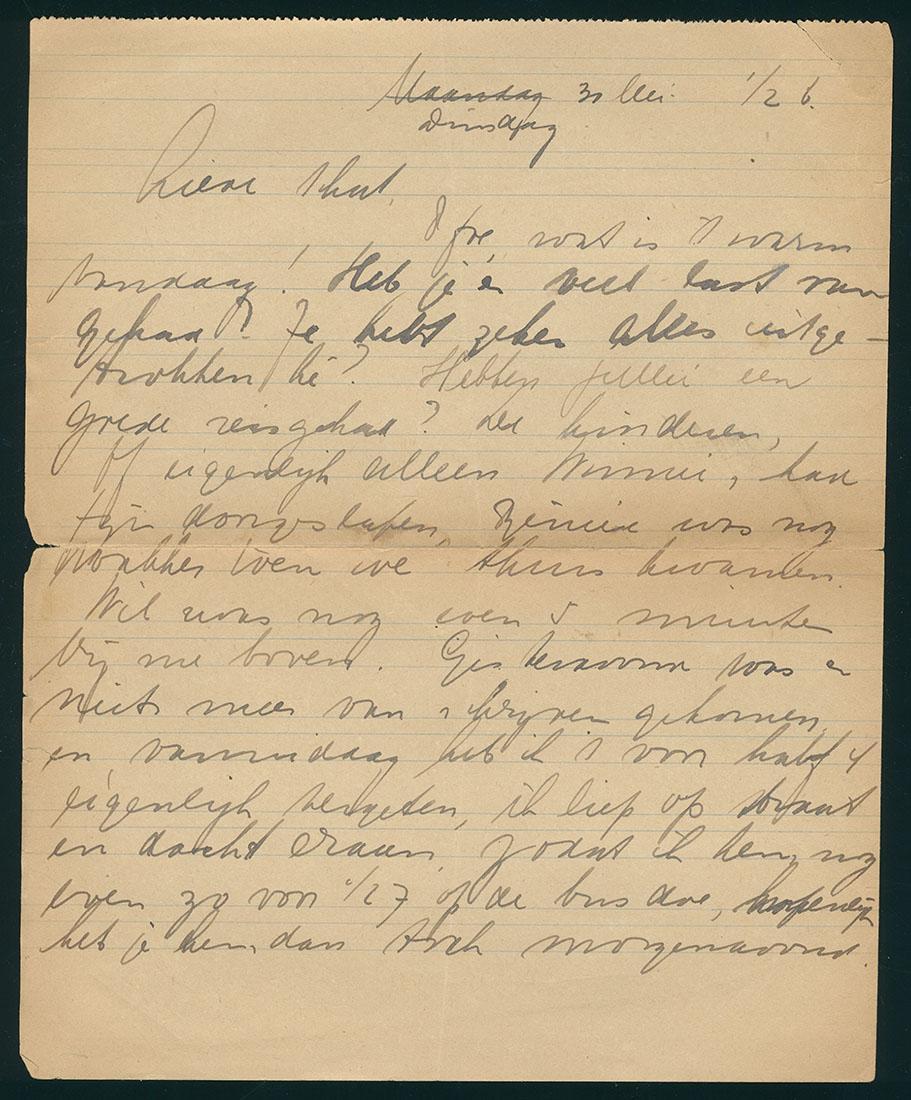 Maandag 30 Mei. 1/2 6.
Dinsdag
Lieve schat,
wat is 't warm
vandaag! Heb je er veel last van
gehad? Je hebt zeker alles uitge-
trokken hè? Hebben jullie een
goede reis gehad? De kinderen,
of eigenlijk alleen Winnie, had
fijn doorgeslapen, was nog
wakker toen we thuis kwamen.
Wil was nog even 5 minuten
bij me boven. Gisteravond was er
niets meer van schrijven gekomen,
en vanmiddag heb ik 't voor half 4
eigenlijk vergeten, ik liep op straat
en dacht eraan, zodat ik hem nog
even zo voor 1/2 7 op de bus doe, hopenlijk
heb je hem dan toch morgenavond.